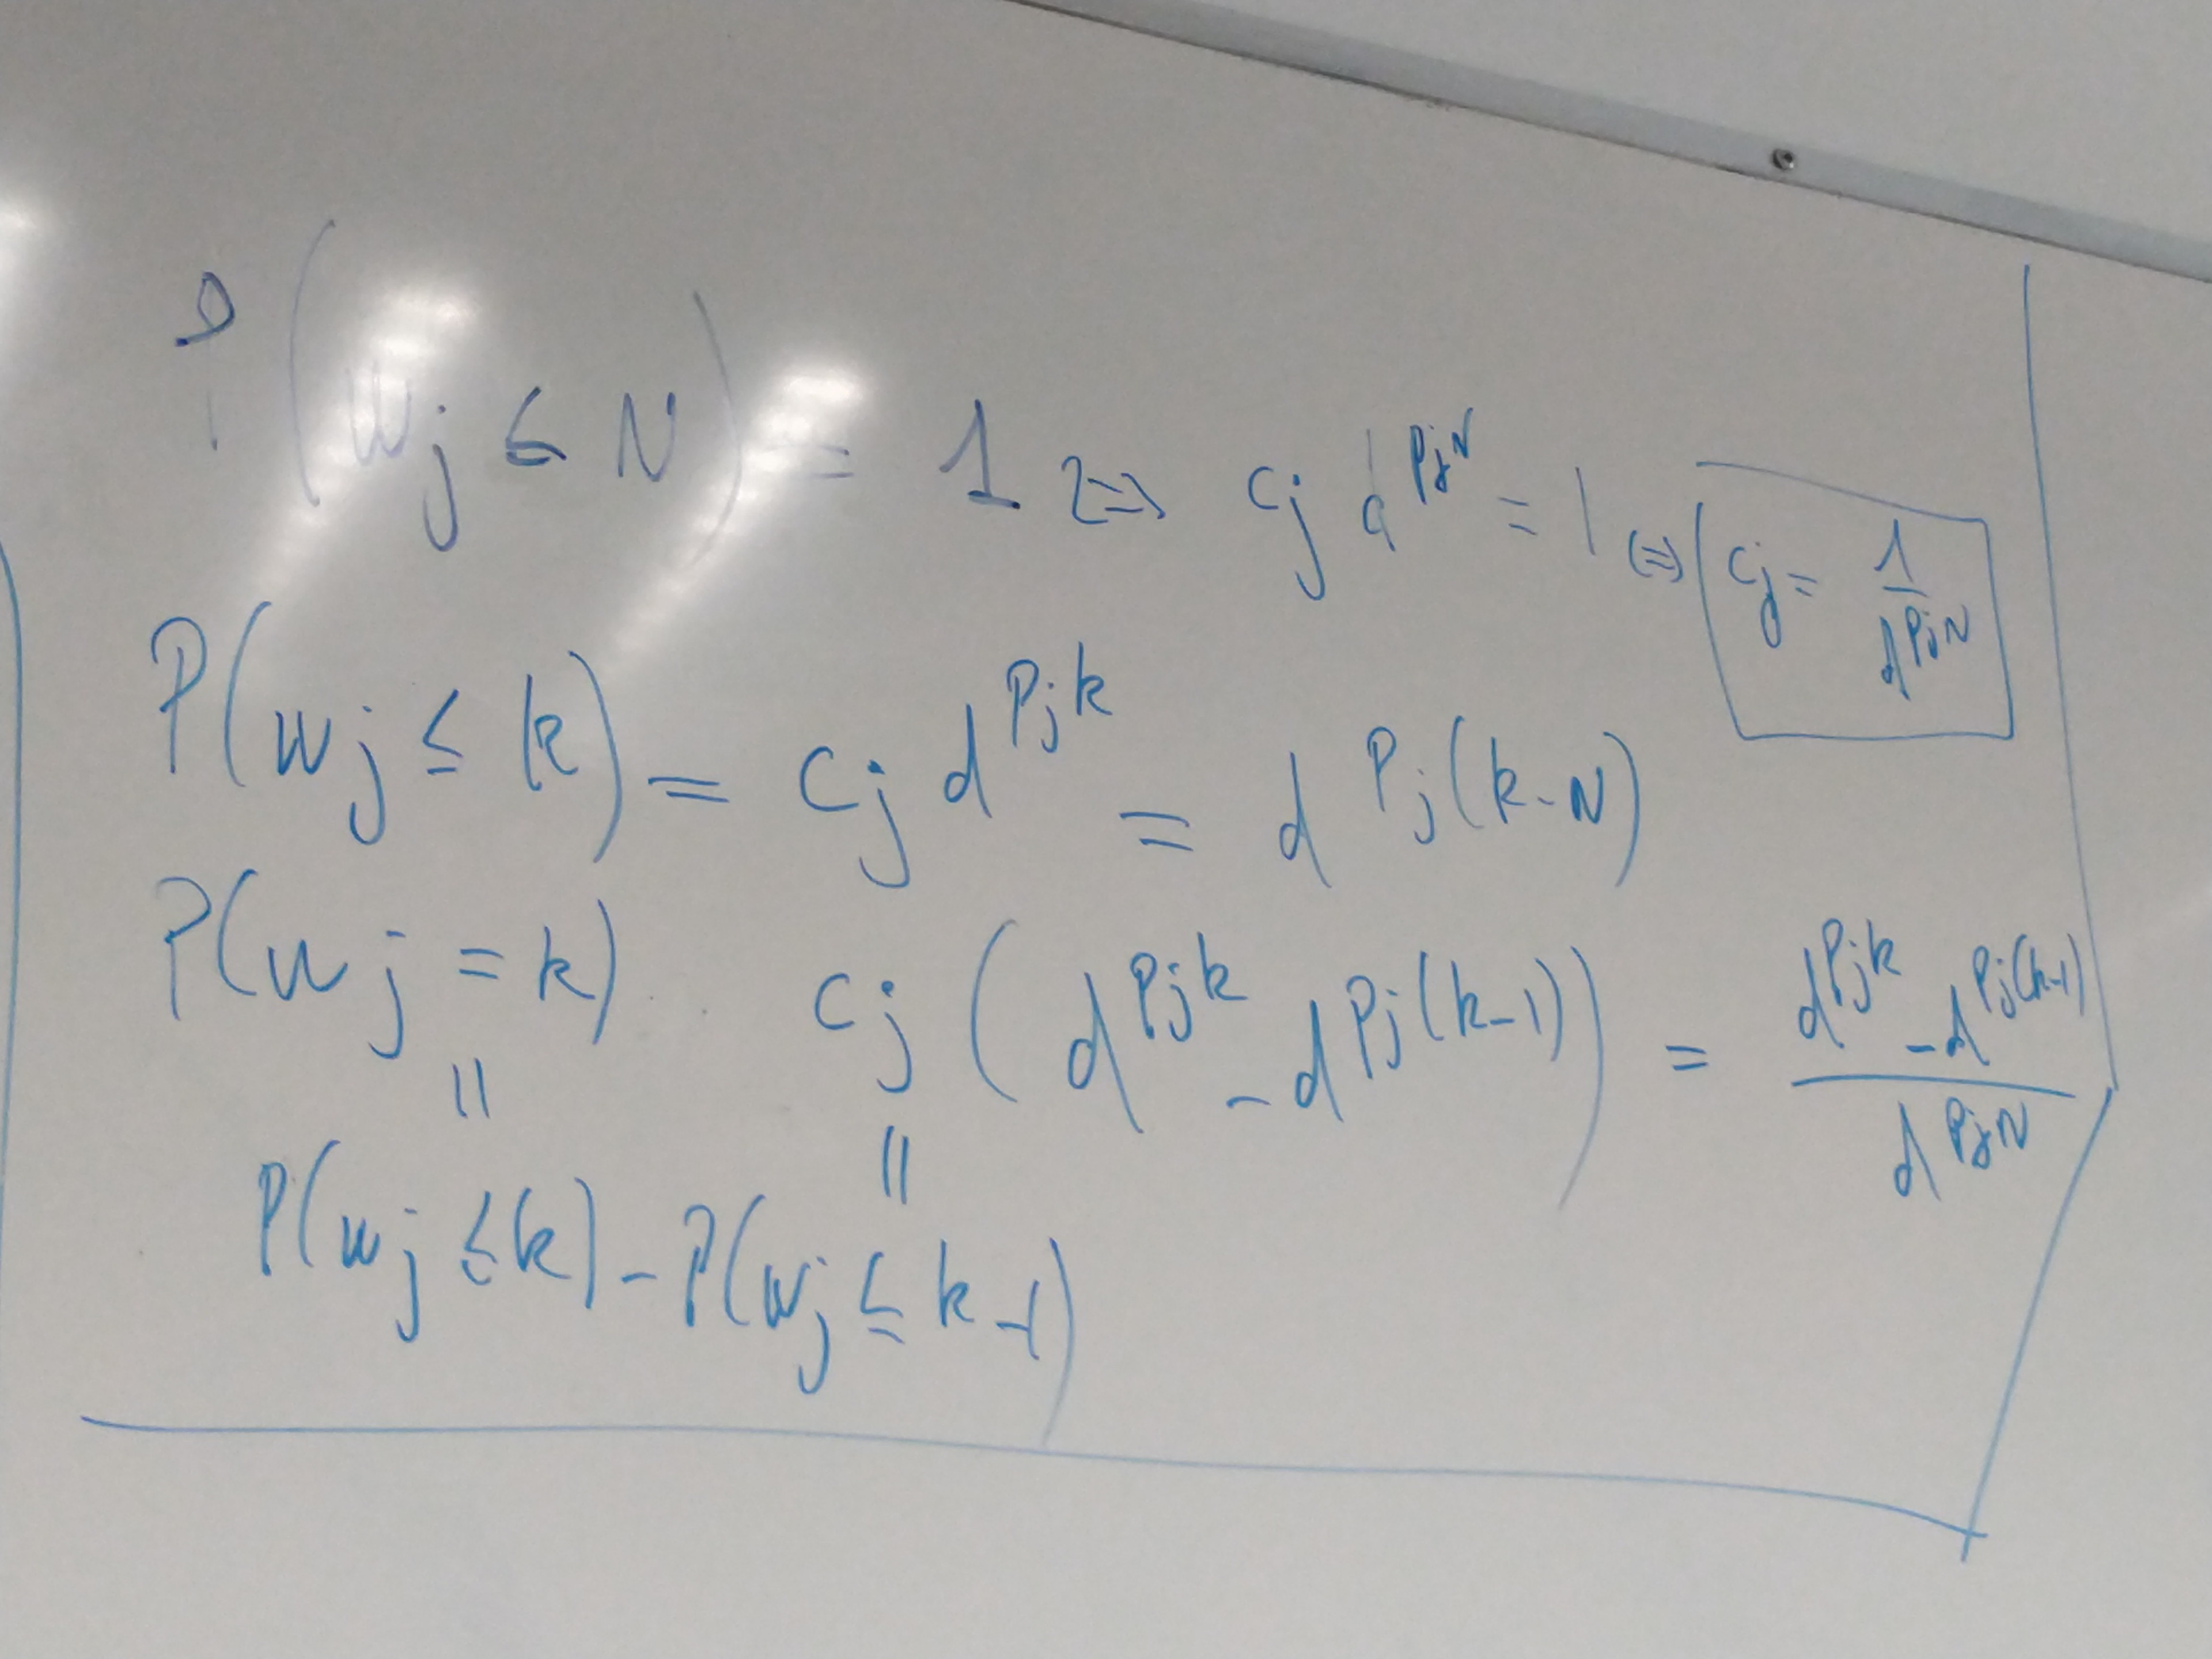 P(wj ≤ N) = 1 ⇔ cj d^{Pj N} = 1 ⇔ cj = 1/d^{Pj N}
P(wj ≤ k) = cj d^{Pj k} = d^{Pj(k-N)}
P(wj = k) cj (d^{Pj k} - d^{Pj(k-1)}) = (d^{Pj k} - d^{Pj(k-1)})/d^{Pj N}
= =
P(wj ≤ k) - P(wj ≤ k-1)